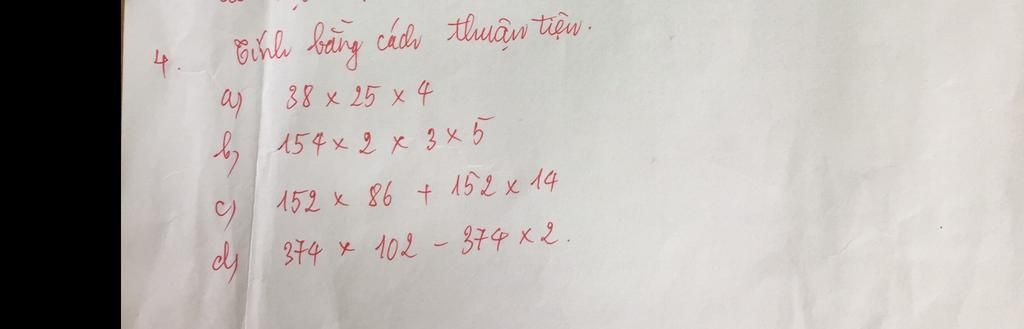 4. Tính bằng cách thuận tiện.
a) 38 × 25 × 4
b) 154 × 2 × 3 × 5
c) 152 × 86 + 152 × 14
d) 374 × 102 - 374 × 2.